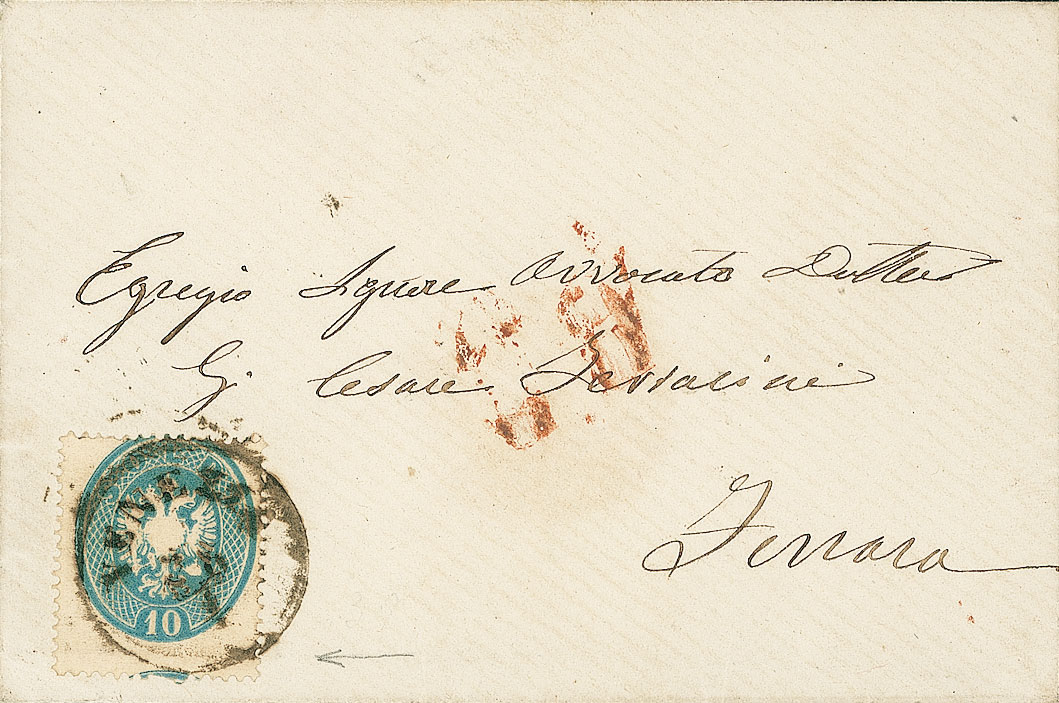 Egregio Signore Avvocato Dottor
G. Cesare
Ferrara
VENEZIA
10